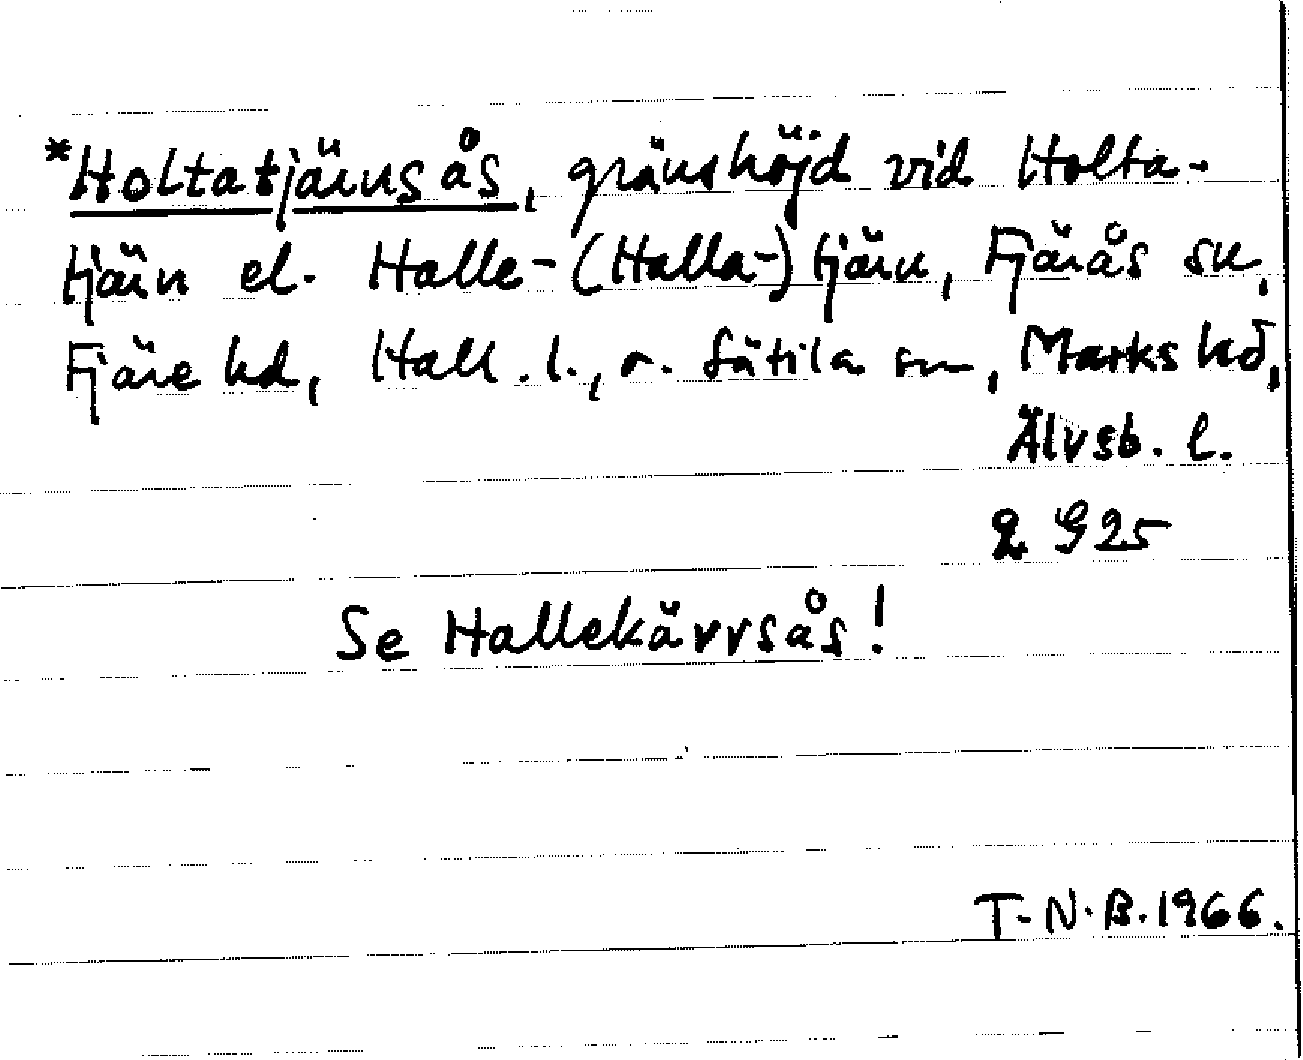 *Holtatjärnsås, gränshöjd vid Holta-
tjärn el. Halle- (Halla-) tjärn, Fjärås sn,
Fjäre hd, Hall. l., o. Sätila sn, Marks hd,
Älvsb. l.
2 G 25
Se Hallekärrsås!
T.N.B. 1966.